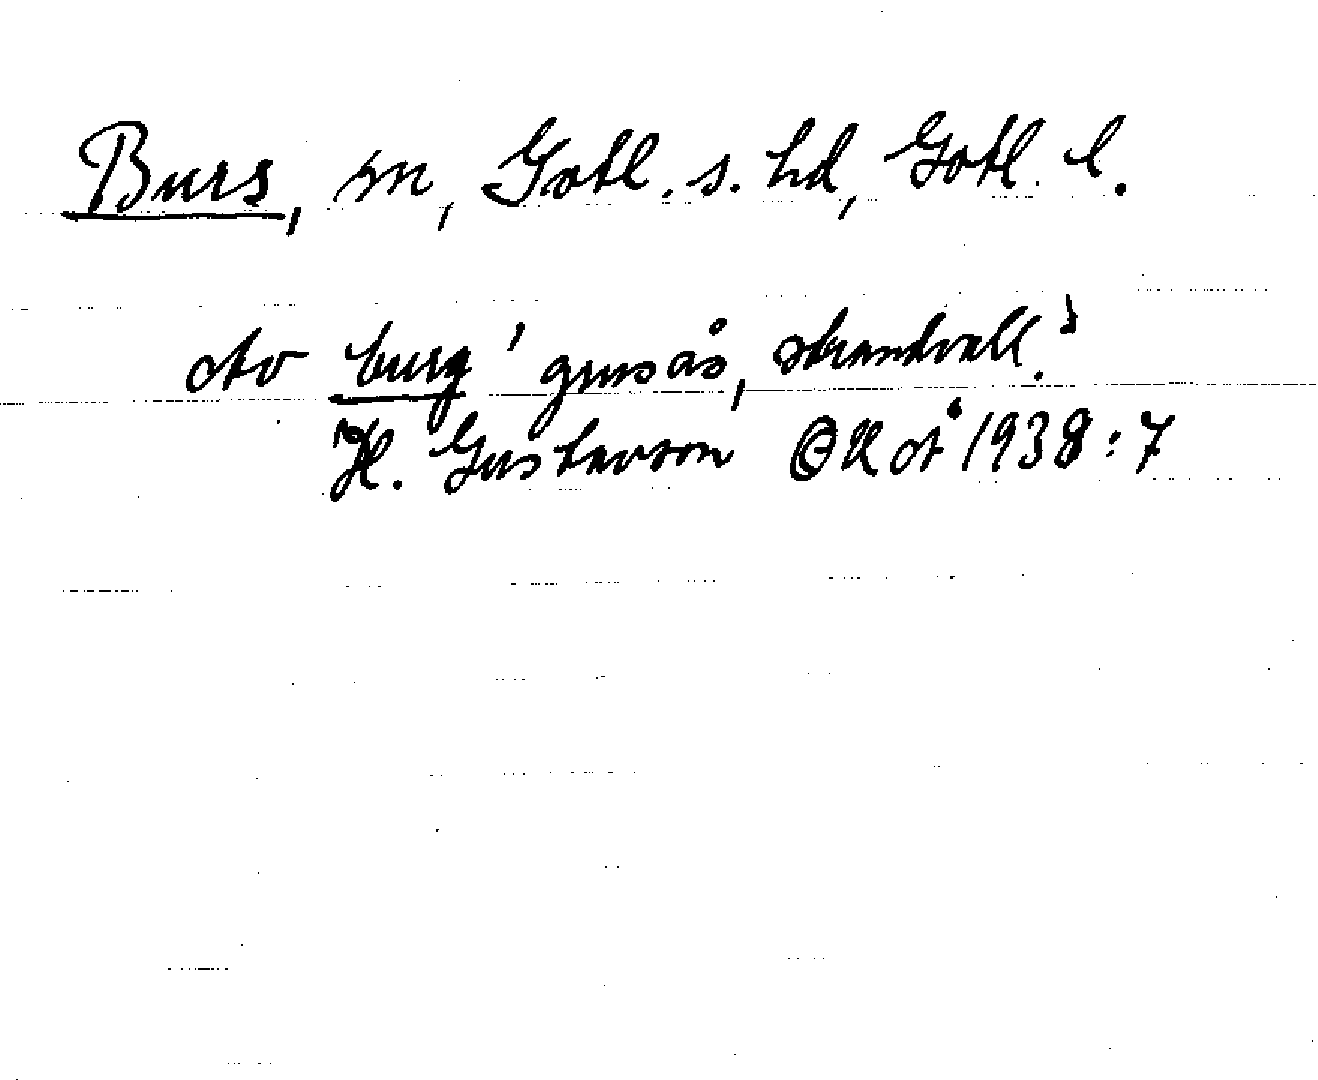 Burs, sn, Gotl. s. hd, Gotl. l.
Av burg 'grusås, strandvall.'
H. Gustavson GKÅ 1938:7